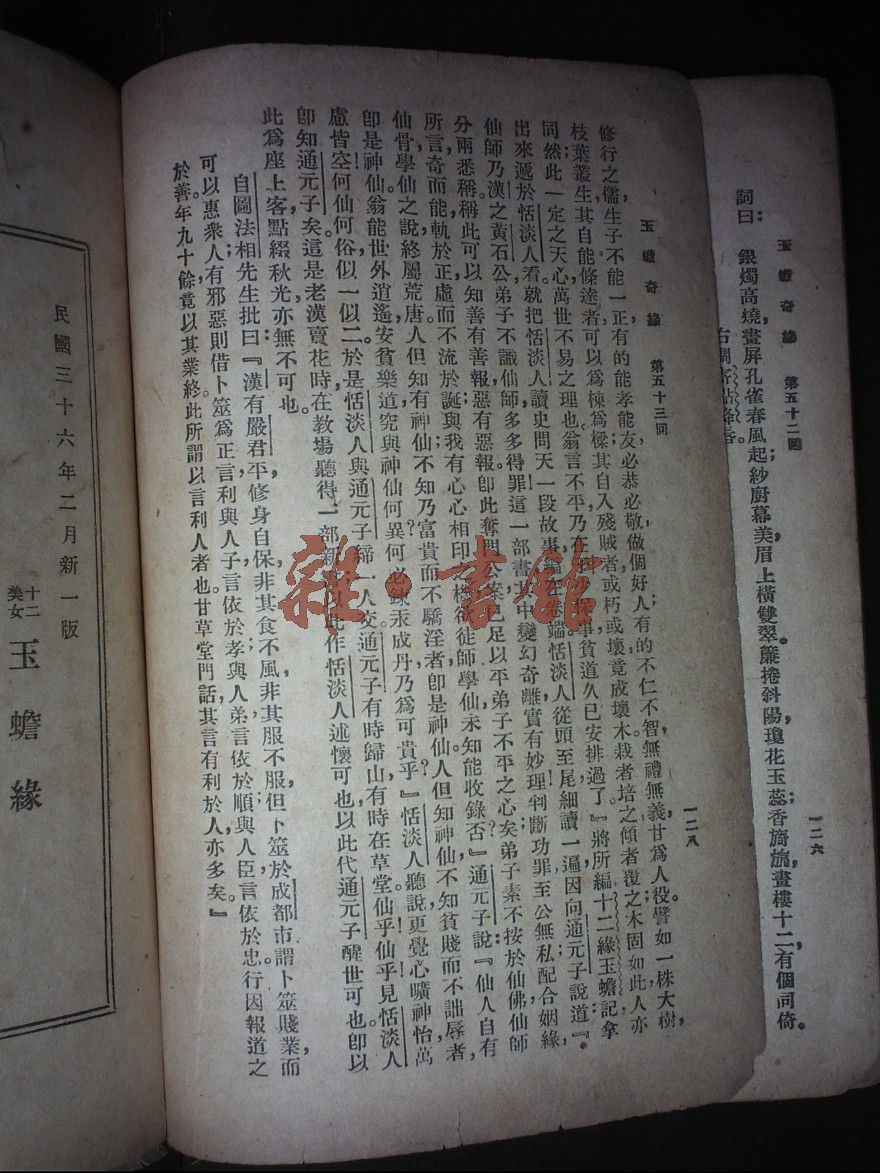 玉蟾奇緣　第五十二回　一二六
詞曰：　銀燭高燒，畫屏孔雀春風起；紗廚幕美，眉上橫雙翠。簾捲斜陽，瓊花玉蕊；香旖旎，畫樓十二，有個同倚。
玉蟾奇緣　第五十三回　一二八
修行之儒，生子不能一正，有的能孝能友，必恭必敬，做個好人；有的不仁不智，無禮無義，甘爲人役。譬如一株大樹，
枝葉叢生，其自能條達者，可以爲棟爲樑；其自入殘賊者，或朽或壞，竟成壞木。栽者培之，傾者覆之，木固如此，人亦
同然，此一定之天心，萬世不易之理也。翁言不平，乃在事貧道久已安排過了。』將所編十二緣玉蟾記拿
出來，遞於恬淡人看，就把恬淡人讀史問天一段故事，編在卷端。恬淡人從頭至尾，細讀一遍，因向通元子說道：『
仙師乃漢之黃石公，弟子不識仙師，多多得罪！這一部書，其中變幻奇離，實有妙理；判斷功罪，至公無私；配合姻緣，
分兩悉稱，稱此可以知善有善報，惡有惡報。即此奪門公案，已足以平弟子不平之心矣。弟子素不按於仙佛，仙師
所言奇而能軌於正，虛而不流於誕，與我有心心相印之機，欲從師學仙，未知能收錄否？』通元子說：『仙人自有
仙骨，學仙之說，終屬荒唐。人但知有神仙，不知乃富貴而不驕淫者，即是神仙；人但知神仙，不知貧賤而不詘辱者，
即是神仙。翁能世外逍遙，安貧樂道，究與神仙何異？何必鍊汞成丹，乃爲可貴乎？』恬淡人聽說，更覺心曠神怡，萬
慮皆空，何仙何俗，似一似二，於是恬淡人與通元子締一人交，通元子有時歸山，有時在草堂。仙乎！仙乎！見恬淡人
即知通元子矣。這是老漢賣花時，在教場聽得一部新書，以此作恬淡人述懷可也，以此代通元子醒世可也，即以
此爲座上客點綴秋光，亦無不可也。
自圖法相先生批曰：『漢有嚴君平，修身自保，非其食不風，非其服不服，但卜筮於成都市，謂卜筮賤業，而
可以惠衆人；有邪惡則借卜筮爲正言利，與人子言依於孝；與人弟言依於順；與人臣言依於忠，行因報道之
於善。年九十餘，竟以其業終，此所謂以言利人者也。甘草堂門話，其言有利於人亦多矣。』
民國三十六年二月新一版
十二
美女
玉蟾緣
雜·書館